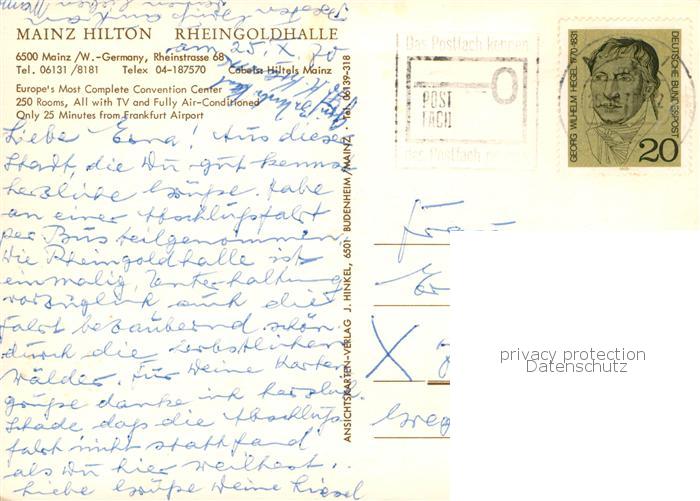 MAINZ HILTON RHEINGOLDHALLE
6500 Mainz /W.-Germany, Rheinstrasse 68
Tel. 06131 /8181 Telex 04-187570 Cables: Hiltels Mainz
Europe's Most Complete Convention Center
250 Rooms, All with TV and Fully Air-Conditioned
Only 25 Minutes from Frankfurt Airport
am 25. X. 70
Liebe Erna! Aus dieser
Stadt, die Du gut kennst
herzliche Grüße. Habe
an einer Abschlußfahrt
per Bus teilgenommen.
Die Rheingoldhalle ist
einmalig, Unterhaltung
vorzüglich auch die
Fahrt bezaubernd schön
durch die herbstlichen
Wälder. Für Deine Karten
grüße danke ich herzlich.
Schade daß die Abschluß
fahrt nicht stattfand
als Du hier weiltest.
Liebe Grüße Deine Liesel
ANSICHTSKARTEN-VERLAG J. HINKEL, 6501 BUDENHEIM/MAINZ · Tel. 06139-318
Das Postfach kennen
POST
FACH
das Postfach
GEORG WILHELM HEGEL 1770-1831
DEUTSCHE BUNDESPOST
20
Frau
Er
X
Greg
privacy protection
Datenschutz